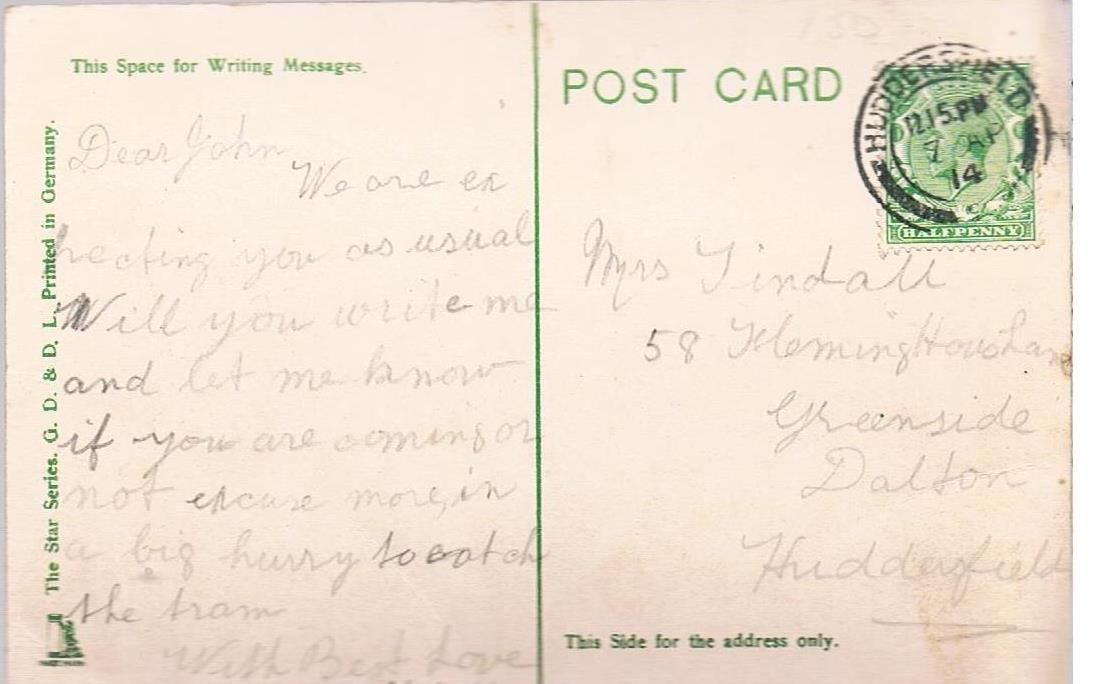 This Space for Writing Messages.
Dear John
We are ex
pecting you as usual
Will you write me
and let me know
if you are coming or
not excuse more, in
a big hurry to catch
the tram
With Best Love
The Star Series. G. D. & D. L. Printed in Germany.
POST CARD
HUDDERSFIELD
12.15 PM
7 AP
14
HALFPENNY
Mrs Tindall
58
Greenside
Dalton
Huddersfield
This Side for the address only.